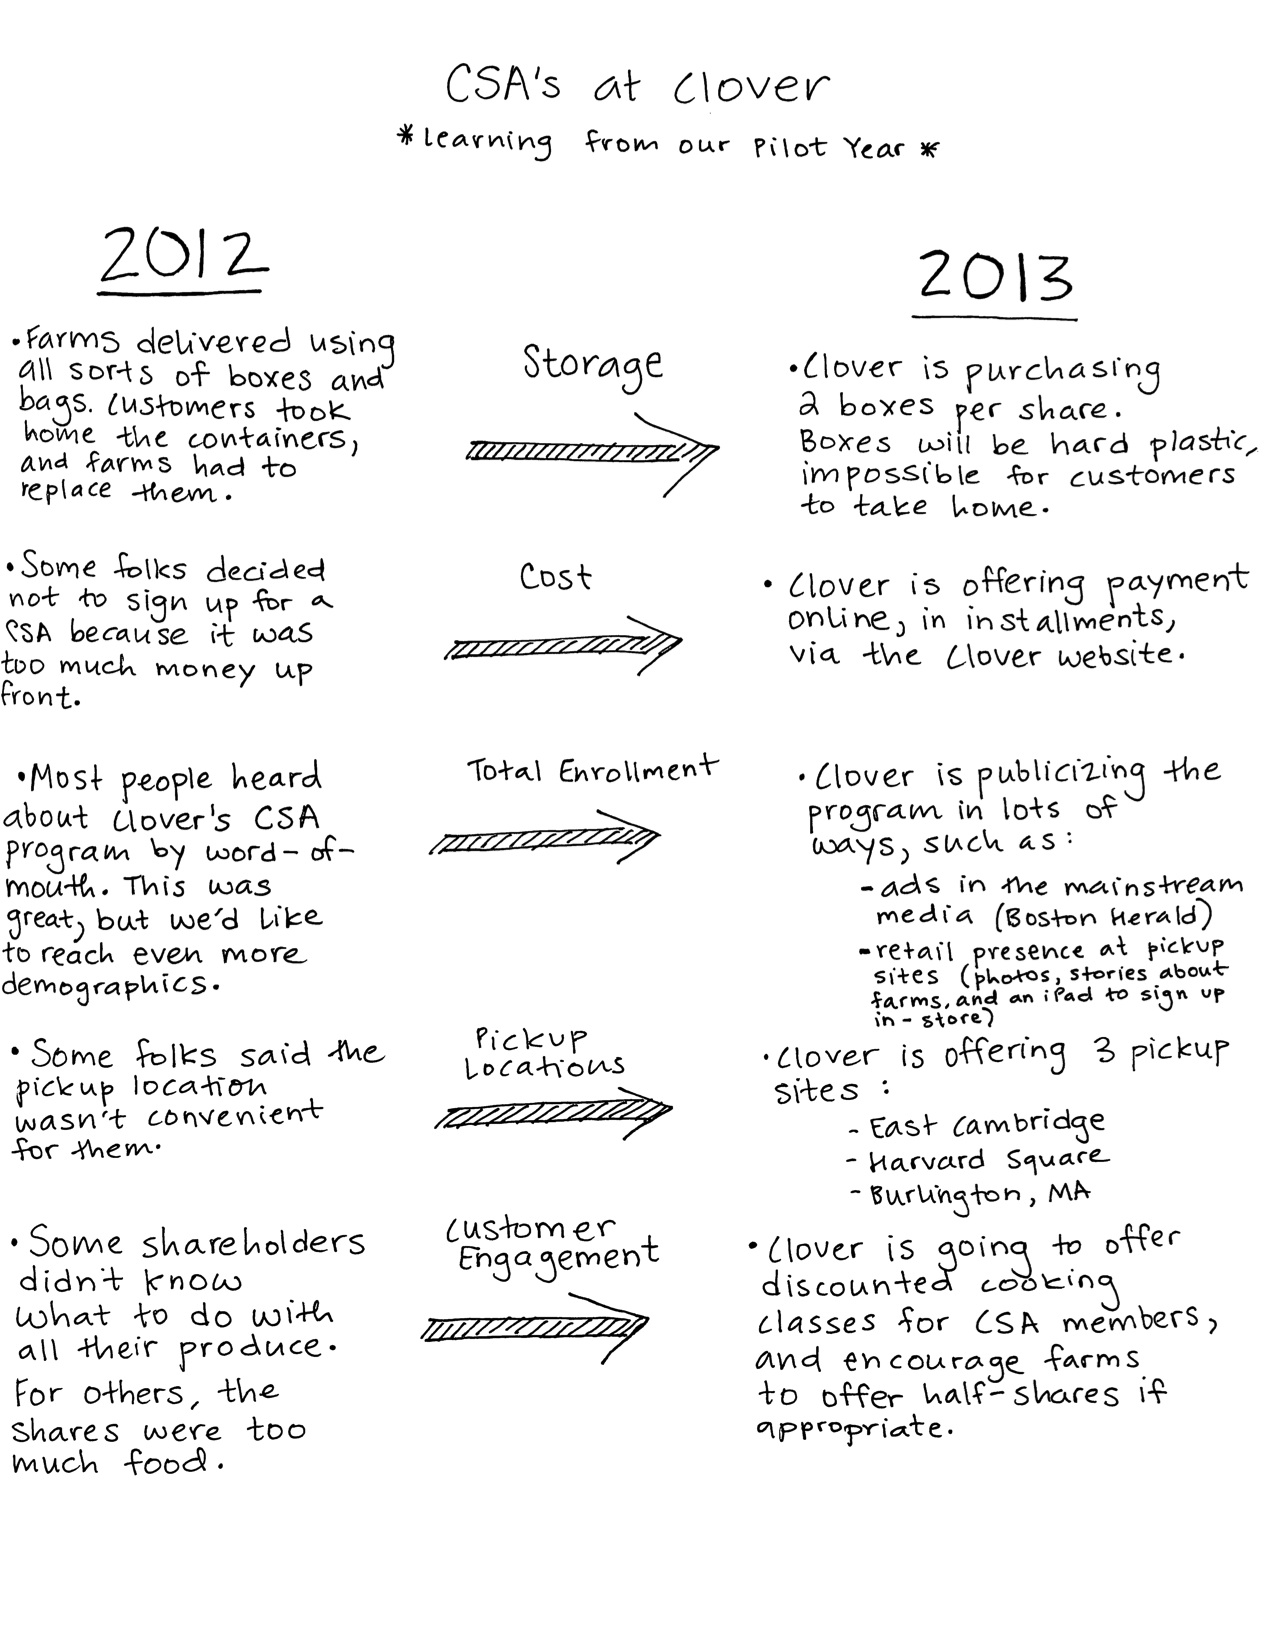 CSA's at Clover
*Learning from our Pilot Year*
2012
2013
•Farms delivered using
all sorts of boxes and
bags. Customers took
home the containers,
and farms had to
replace them.
Storage
•Clover is purchasing
2 boxes per share.
Boxes will be hard plastic,
impossible for customers
to take home.
•Some folks decided
not to sign up for a
CSA because it was
too much money up
front.
Cost
• Clover is offering payment
online, in installments,
via the Clover website.
•Most people heard
about Clover's CSA
program by word-of-
mouth. This was
great, but we'd like
to reach even more
demographics.
Total Enrollment
• Clover is publicizing the
program in lots of
ways, such as:
-ads in the mainstream
media (Boston Herald)
-retail presence at pickup
sites (photos, stories about
farms, and an iPad to sign up
in-store)
• Some folks said the
pickup location
wasn't convenient
for them.
Pickup
Locations
•Clover is offering 3 pickup
sites:
- East Cambridge
- Harvard Square
- Burlington, MA
• Some shareholders
didn't know
what to do with
all their produce.
For others, the
shares were too
much food.
Customer
Engagement
• Clover is going to offer
discounted cooking
classes for CSA members,
and encourage farms
to offer half-shares if
appropriate.